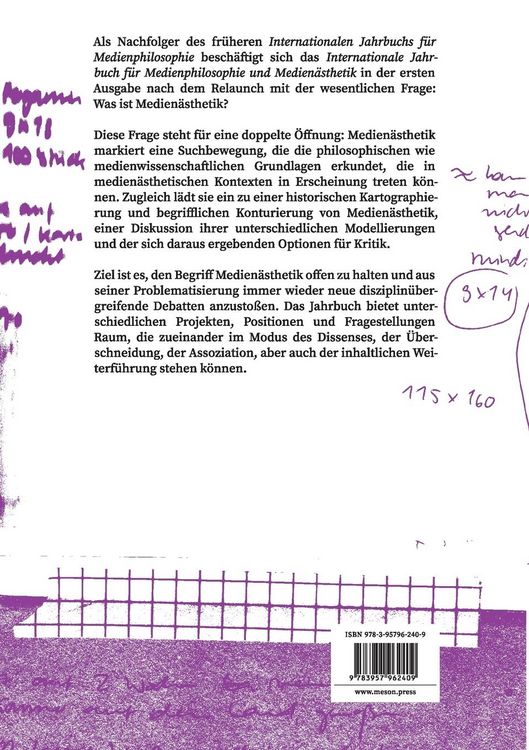 Als Nachfolger des früheren Internationalen Jahrbuchs für
Medienphilosophie beschäftigt sich das Internationale Jahr-
buch für Medienphilosophie und Medienästhetik in der ersten
Ausgabe nach dem Relaunch mit der wesentlichen Frage:
Was ist Medienästhetik?
Diese Frage steht für eine doppelte Öffnung: Medienästhetik
markiert eine Suchbewegung, die die philosophischen wie
medienwissenschaftlichen Grundlagen erkundet, die in
medienästhetischen Kontexten in Erscheinung treten kön-
nen. Zugleich lädt sie ein zu einer historischen Kartographie-
rung und begrifflichen Konturierung von Medienästhetik,
einer Diskussion ihrer unterschiedlichen Modellierungen
und der sich daraus ergebenden Optionen für Kritik.
Ziel ist es, den Begriff Medienästhetik offen zu halten und aus
seiner Problematisierung immer wieder neue disziplinüber-
greifende Debatten anzustoßen. Das Jahrbuch bietet unter-
schiedlichen Projekten, Positionen und Fragestellungen
Raum, die zueinander im Modus des Dissenses, der Über-
schneidung, der Assoziation, aber auch der inhaltlichen Wei-
terführung stehen können.
100 Stück
auf
9 x 14
115 x 160
ISBN 978-3-95796-240-9
9 783957 962409
www.meson.press